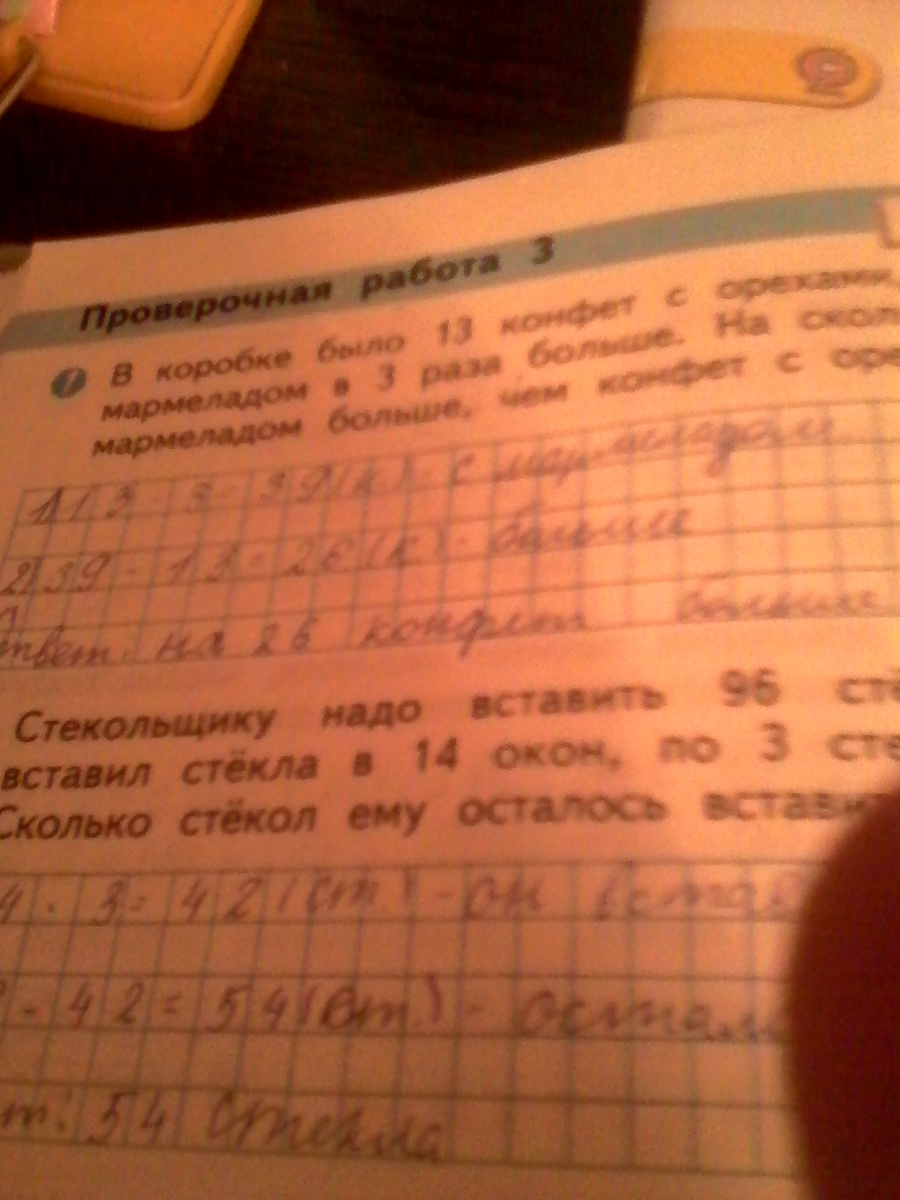 Проверочная работа 3
1 В коробке было 13 конфет с орехами,
мармеладом в 3 раза больше. На скол
мармеладом больше, чем конфет с оре
1) 13 · 3 = 39 (к) - с мармеладом
2) 39 - 13 = 26 (к) - больше
Ответ: на 26 конфет больше
Стекольщику надо вставить 96 стё
вставил стёкла в 14 окон, по 3 сте
Сколько стёкол ему осталось вставит
4 · 3 = 42 (ст.) - он встав
- 42 = 54 (ст.) - остал
т: 54 стекла